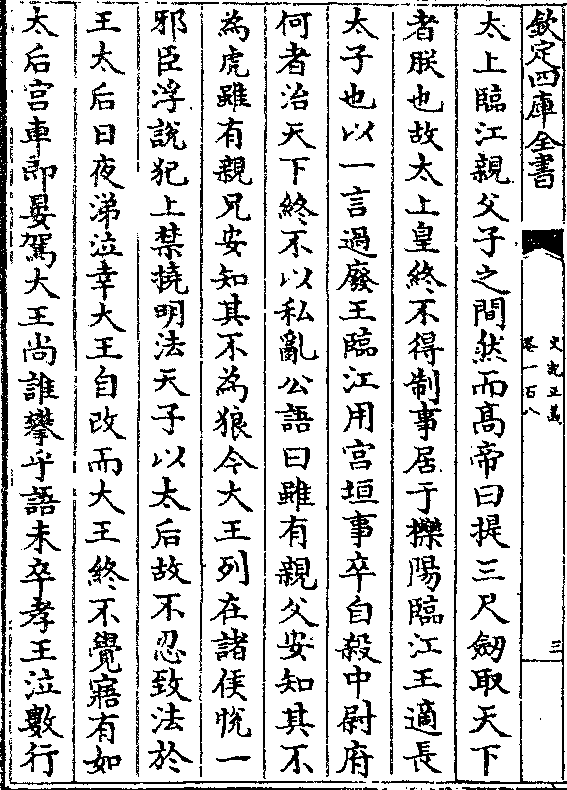 欽定四庫全書
史記正義
卷一百八
三
太上臨江親父子之間然而髙帝曰提三尺劒取天下
者朕也故太上皇終不得制事居于櫟陽臨江王適長
太子也以一言過廢王臨江用宫垣事卒自殺中尉府
何者治天下終不以私亂公語曰雖有親父安知其不
為虎雖有親兄安知其不為狼今大王列在諸侯恱一
邪臣浮說犯上禁撓明法天子以太后故不忍致法於
王太后日夜涕泣幸大王自改而大王終不覺寤有如
太后宫車即晏駕大王尚誰攀乎語未卒孝王泣數行